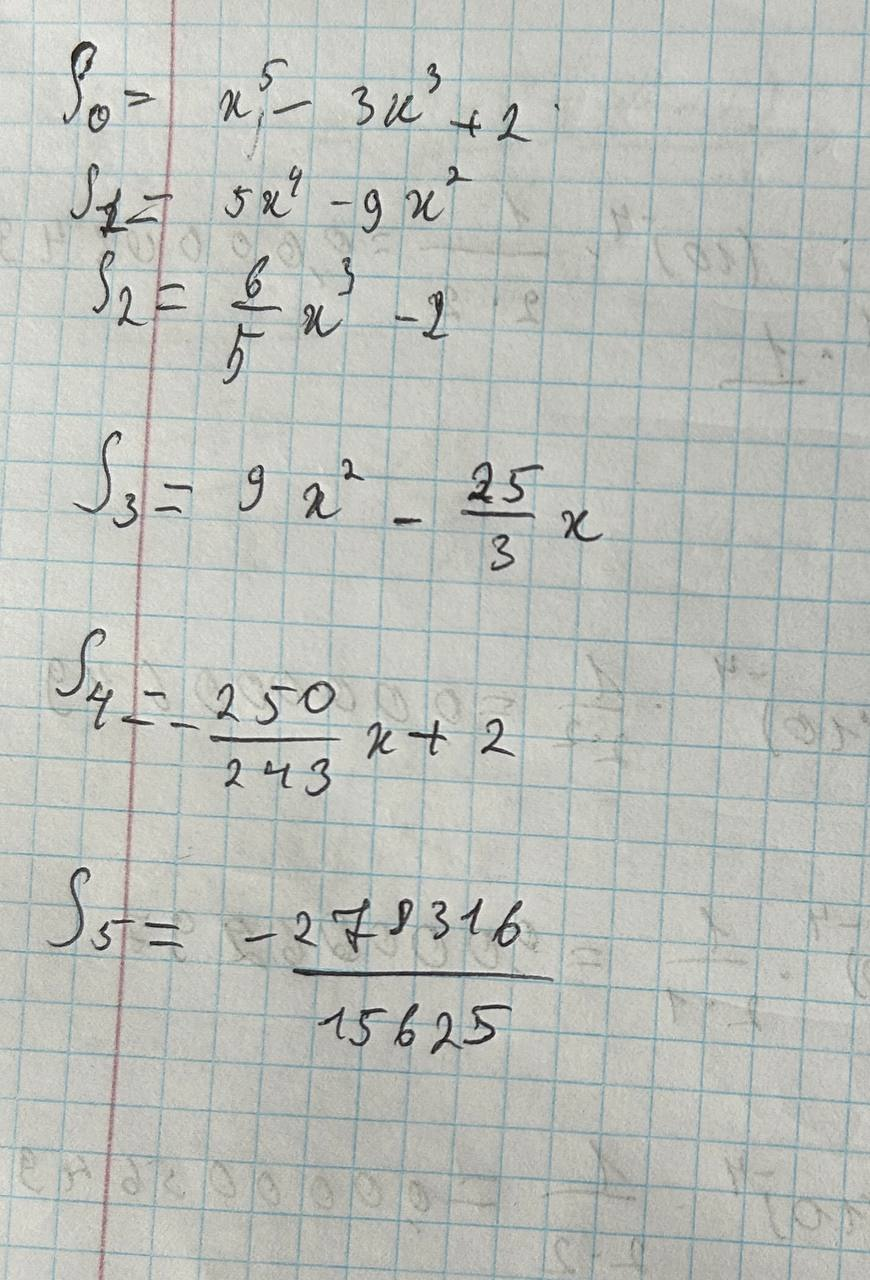 S₀ = x⁵ - 3x³ + 2
S₁ = 5x⁴ - 9x²
S₂ = 6/5 x³ - 2
S₃ = 9x² - 25/3 x
S₄ = -250/243 x + 2
S₅ = -278316/15625